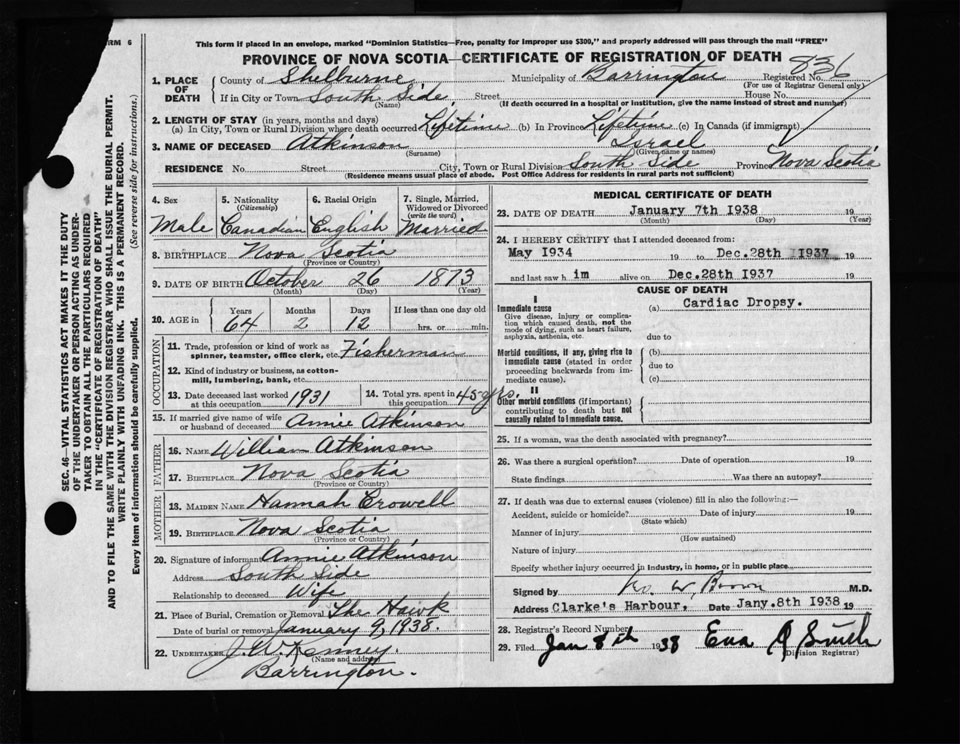 RM 6
This form if placed in an envelope, marked "Dominion Statistics—Free, penalty for improper use $300," and properly addressed will pass through the mail "FREE"
PROVINCE OF NOVA SCOTIA—CERTIFICATE OF REGISTRATION OF DEATH
836
1. PLACE OF DEATH
County of Shelburne Municipality of Barrington Registered No.
(For use of Registrar General only)
If in City or Town South Side Street House No.
(Name) (If death occurred in a hospital or institution, give the name instead of street and number)
2. LENGTH OF STAY (in years, months and days)
(a) In City, Town or Rural Division where death occurred Lifetime (b) In Province Lifetime (c) In Canada (if immigrant)
3. NAME OF DECEASED Atkinson Israel
(Surname) (Given name or names)
RESIDENCE No. Street City, Town or Rural Division South Side Province Nova Scotia
(Residence means usual place of abode. Post Office Address for residents in rural parts not sufficient)
4. Sex 5. Nationality (Citizenship) 6. Racial Origin 7. Single, Married, Widowed or Divorced (write the word)
Male Canadian English Married
8. BIRTHPLACE Nova Scotia
(Province or Country)
9. DATE OF BIRTH October 26 1873
(Month) (Day) (Year)
10. AGE in Years Months Days If less than one day old
64 2 12 hrs. or min.
OCCUPATION
11. Trade, profession or kind of work as spinner, teamster, office clerk, etc. Fisherman
12. Kind of industry or business, as cotton-mill, lumbering, bank, etc.
13. Date deceased last worked at this occupation 1931 14. Total yrs. spent in this occupation 45 yrs.
15. If married give name of wife or husband of deceased Annie Atkinson
FATHER
16. NAME William Atkinson
17. BIRTHPLACE Nova Scotia
(Province or Country)
MOTHER
18. MAIDEN NAME Hannah Crowell
19. BIRTHPLACE Nova Scotia
(Province or Country)
20. Signature of informant Annie Atkinson
Address South Side
Relationship to deceased Wife
21. Place of Burial, Cremation or Removal The Hawk
Date of burial or removal January 9, 1938.
22. UNDERTAKER J. W. Kenney
(Name and address)
Barrington.
MEDICAL CERTIFICATE OF DEATH
23. DATE OF DEATH January 7th 1938 19
(Month) (Day) (Year)
24. I HEREBY CERTIFY that I attended deceased from:
May 1934 19 to Dec.28th 1937 19
and last saw h im alive on Dec.28th 1937 19
CAUSE OF DEATH
I
Immediate cause
Give disease, injury or complication which caused death, not the mode of dying, such as heart failure, asphyxia, asthenia, etc.
(a) Cardiac Dropsy.
due to
Morbid conditions, if any, giving rise to immediate cause (stated in order proceeding backwards from immediate cause).
(b)
due to
(c)
II
Other morbid conditions (if important) contributing to death but not causally related to immediate cause.
25. If a woman, was the death associated with pregnancy?
26. Was there a surgical operation? Date of operation 19
State findings Was there an autopsy?
27. If death was due to external causes (violence) fill in also the following:—
Accident, suicide or homicide? Date of injury 19
(State which)
Manner of injury
(How sustained)
Nature of injury
Specify whether injury occurred in industry, in home, or in public place
Signed by W. Brown M.D.
Address Clarke's Harbour, Date Jany.8th 1938 19
28. Registrar's Record Number
29. Filed Jan 8th 1938 Eva A Smith
(Division Registrar)
SEC. 46—VITAL STATISTICS ACT MAKES IT THE DUTY
OF THE UNDERTAKER OR PERSON ACTING AS UNDER-
TAKER TO OBTAIN ALL THE PARTICULARS REQUIRED
IN THE "CERTIFICATE OF REGISTRATION OF DEATH"
AND TO FILE THE SAME WITH THE DIVISION REGISTRAR WHO SHALL ISSUE THE BURIAL PERMIT.
WRITE PLAINLY WITH UNFADING INK. THIS IS A PERMANENT RECORD.
Every item of information should be carefully supplied. (See reverse side for instructions.)